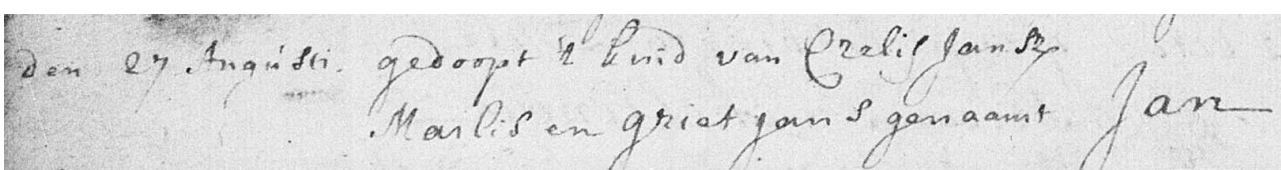 den 27 Augusti. gedoopt 't kind van Crelis Jansz
Marlis en griet jans genaamt Jan